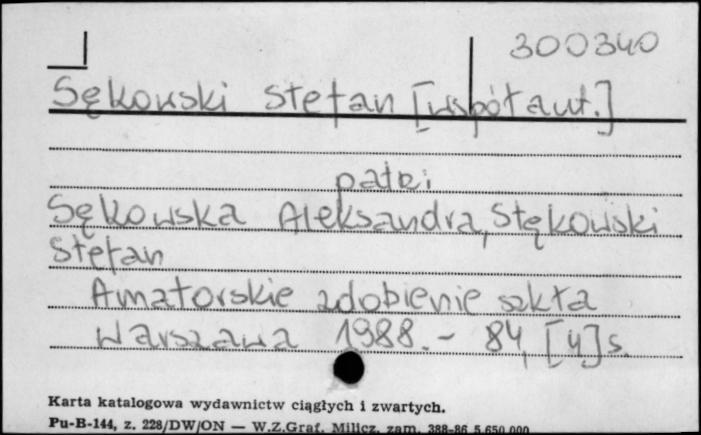 300340
Sękowski Stefan [współaut.]
patrz
Sękowska Aleksandra, Stękowski
Stefan
Amatorskie zdobienie szkła
Warszawa 1988. - 84, [4] s.
Karta katalogowa wydawnictw ciągłych i zwartych.
Pu-B-144, z. 228/DW/ON — W.Z.Graf. Milicz, zam. 388-86 5.650.000